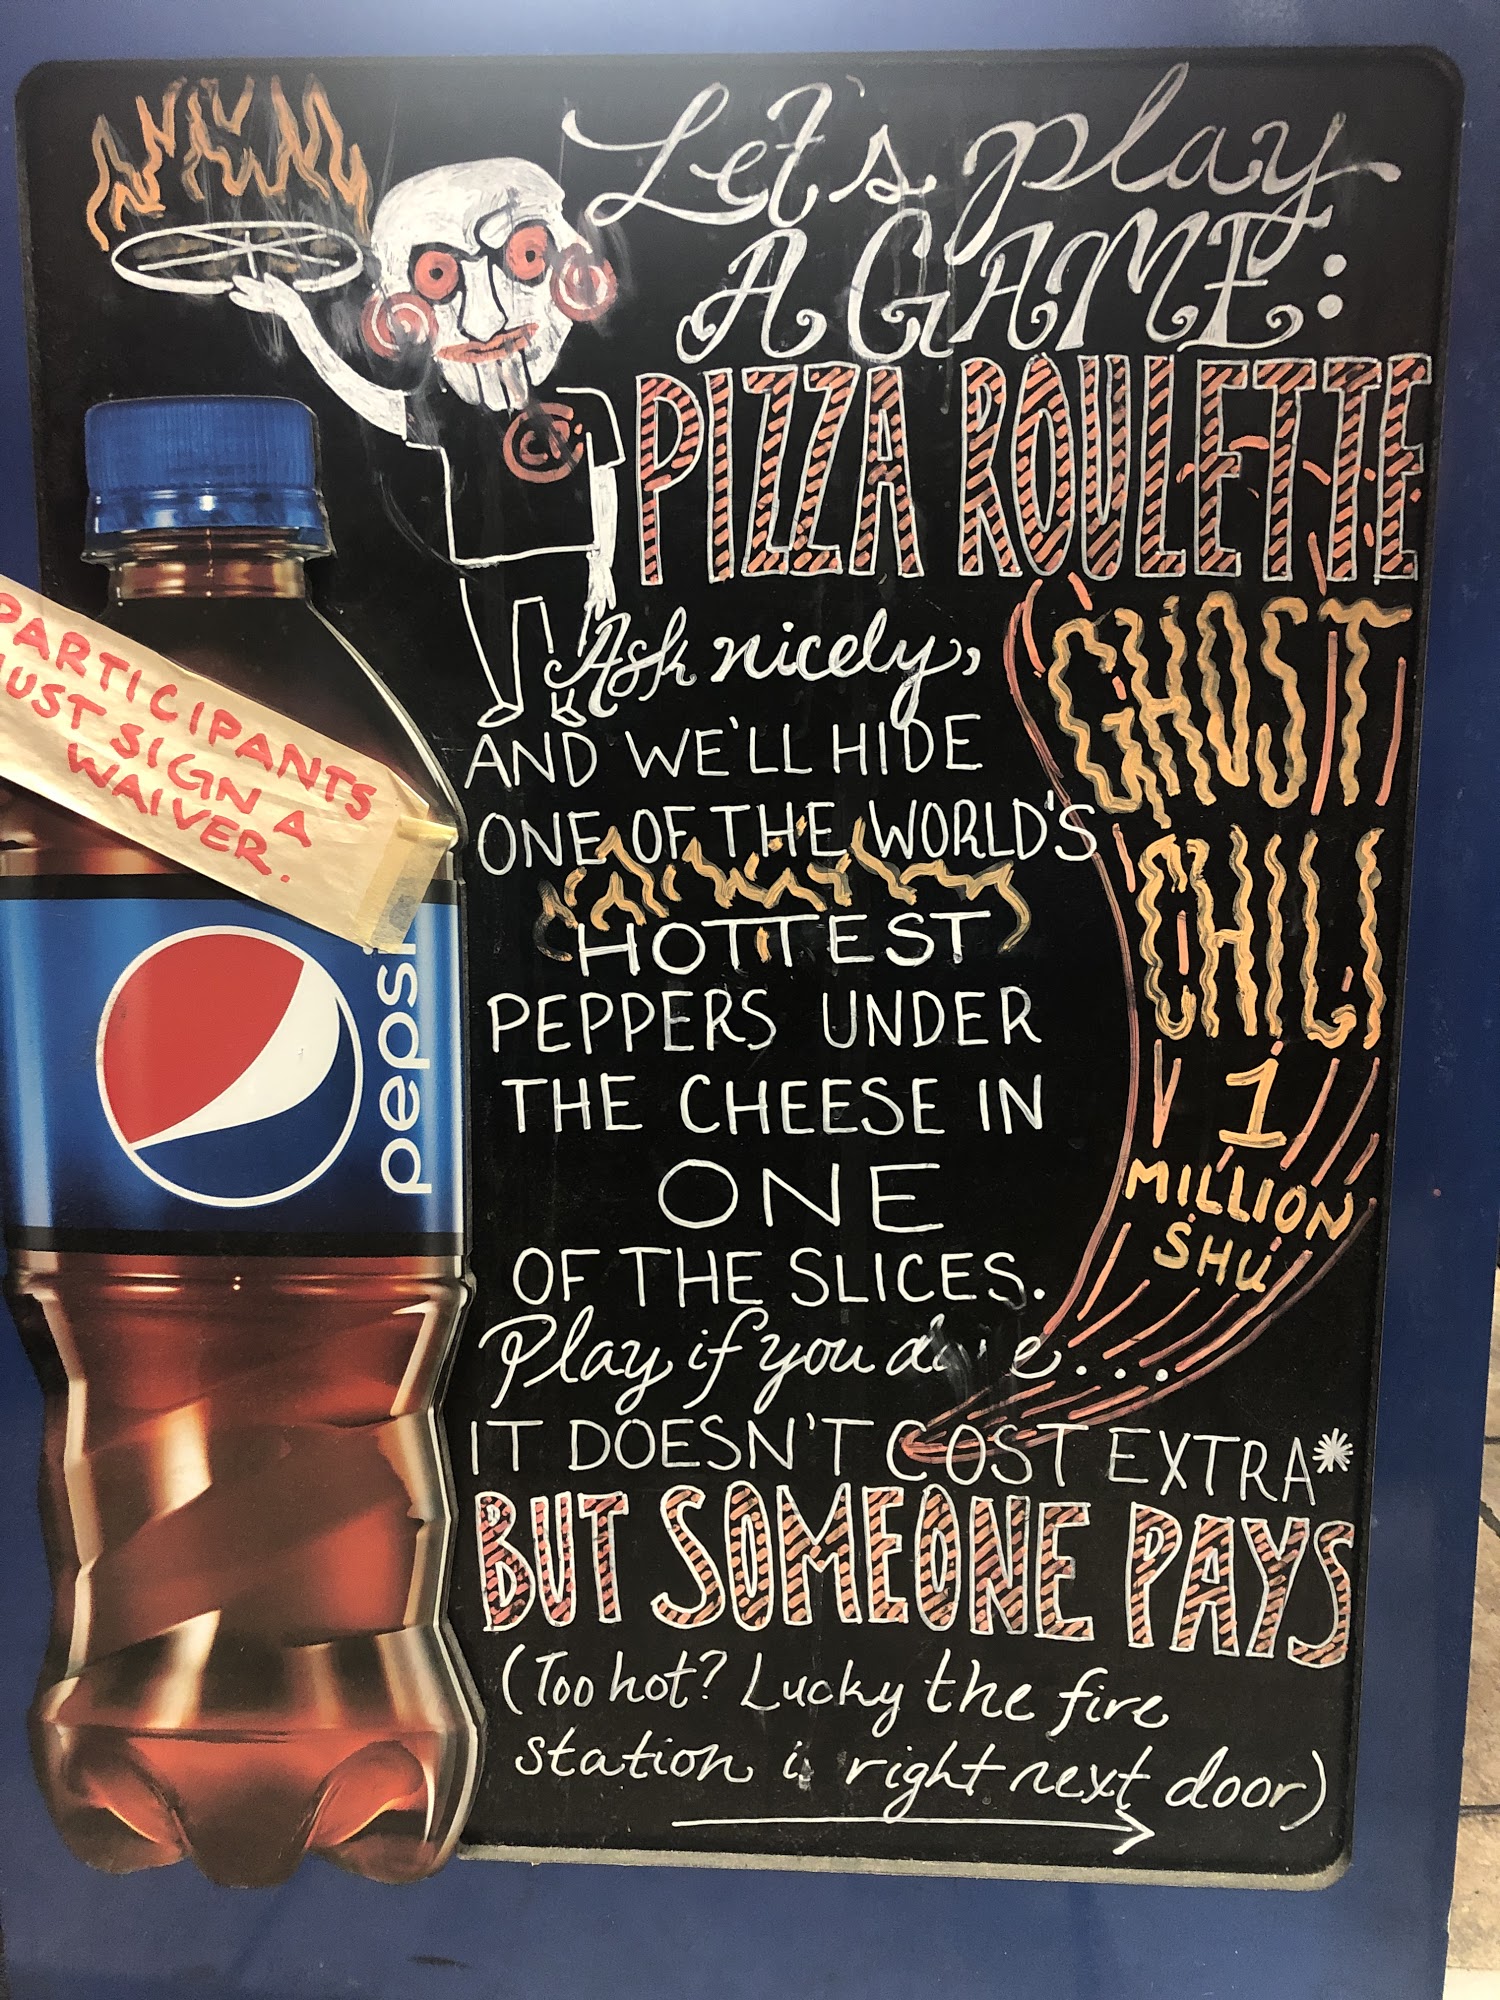 Let's play
A GAME:
PIZZA ROULETTE
Ask nicely,
AND WE'LL HIDE
ONE OF THE WORLD'S
HOTTEST
PEPPERS UNDER
THE CHEESE IN
ONE
OF THE SLICES.
Play if you
IT DOESN'T COST EXTRA*
BUT SOMEONE PAYS
(Too hot? Lucky the fire
station is right next door)
GHOST
CHILI
1
MILLION
SHU
PARTICIPANTS
MUST SIGN A
WAIVER.
pepsi